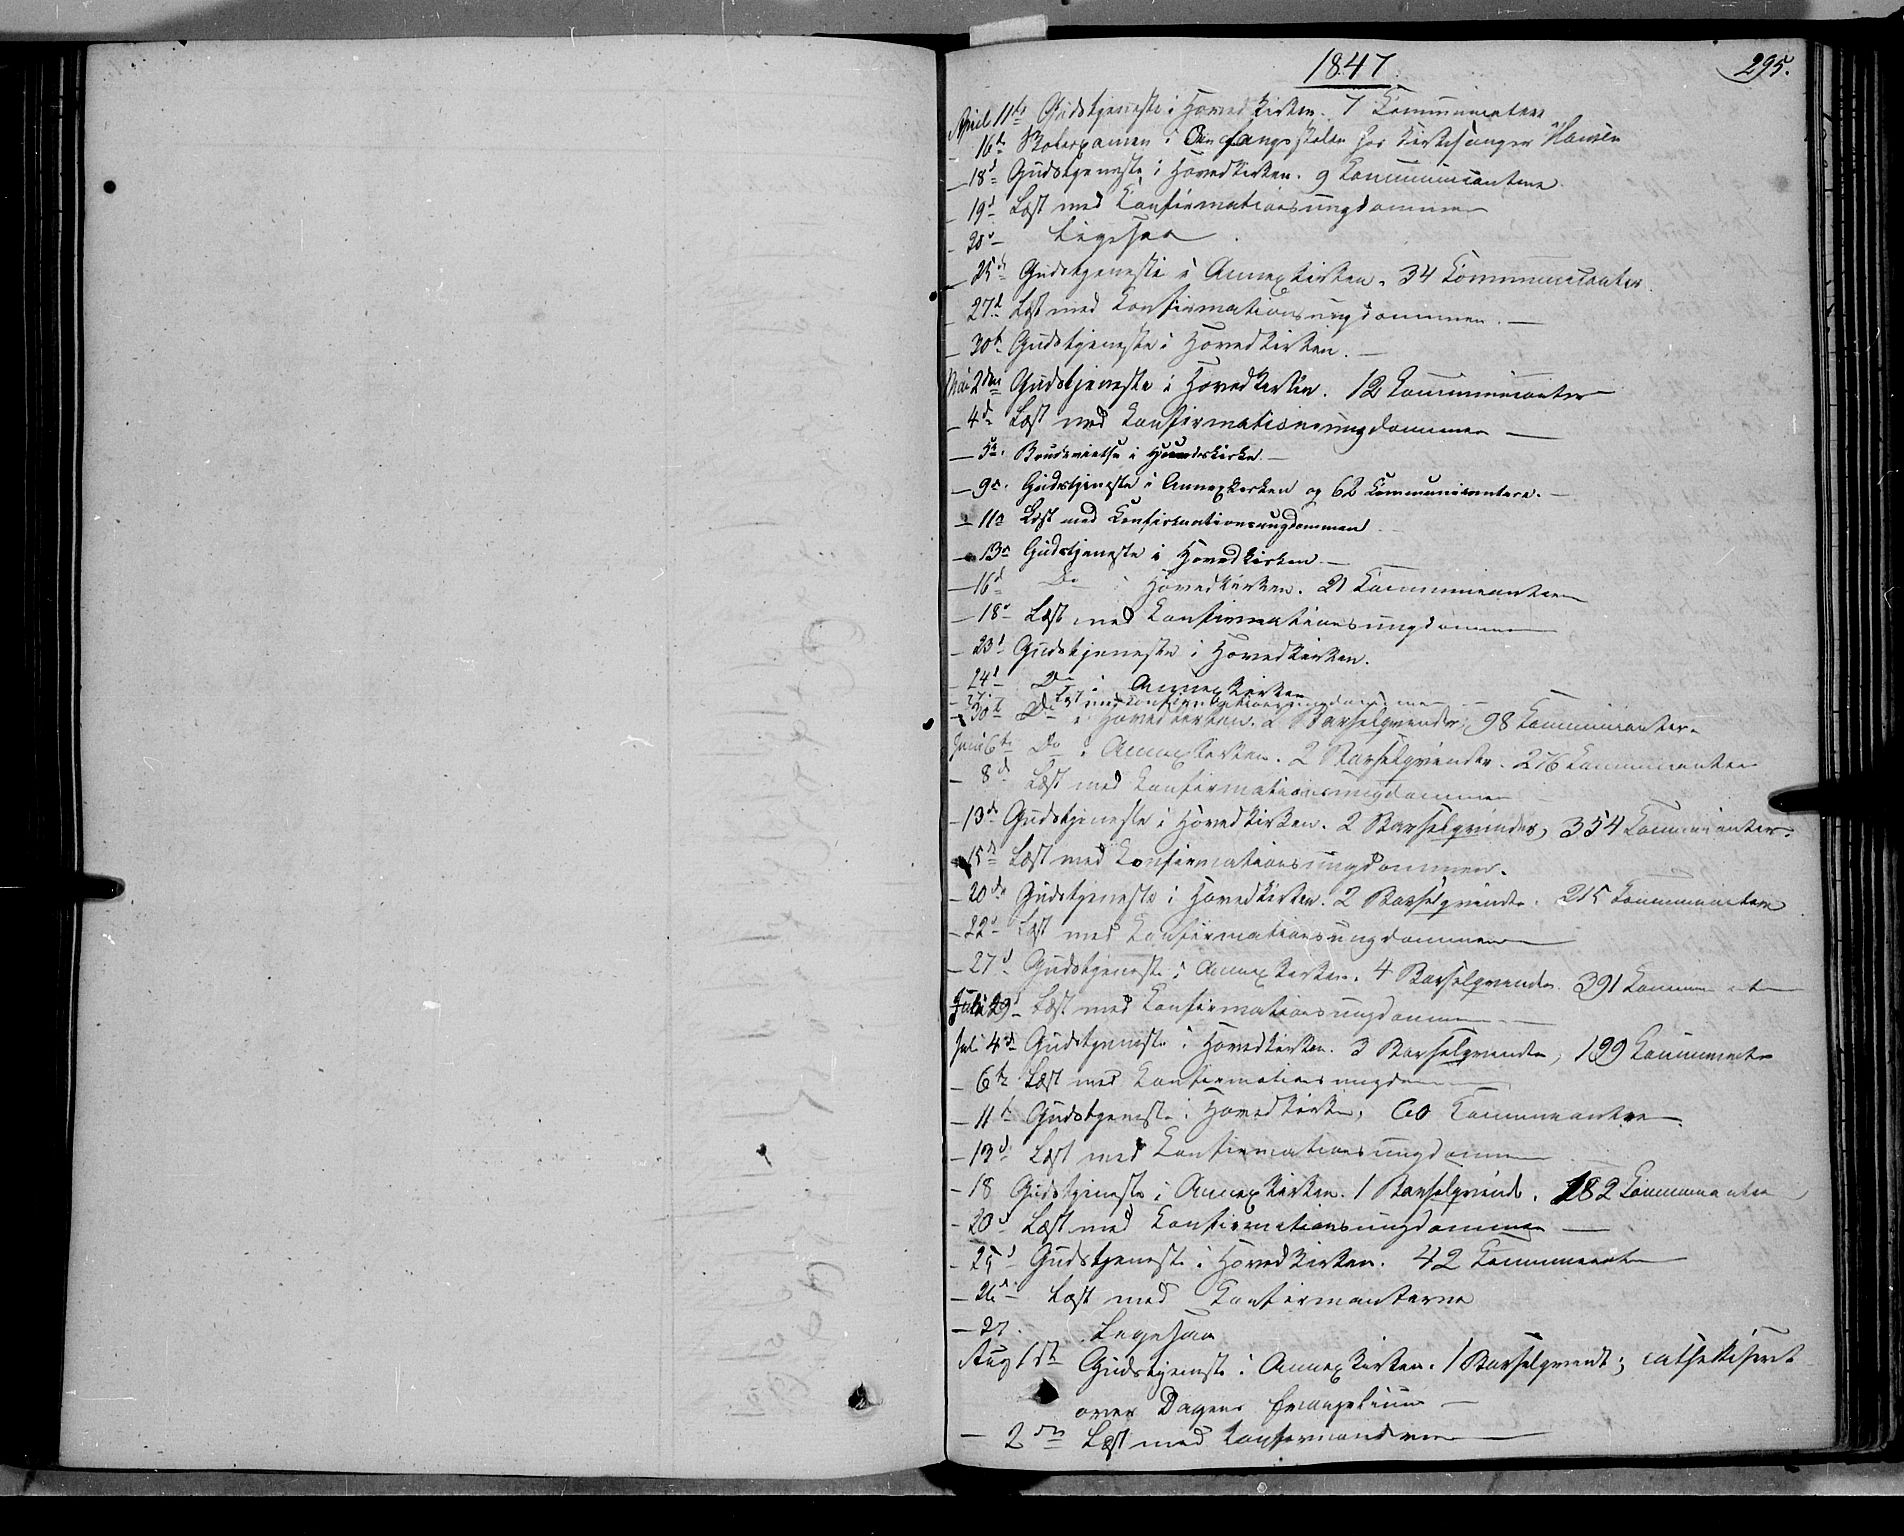 1847.
295.
April 11te Gudstjeneste i Hovedkirken. 7 Communicantere
16de Skoleexamen i Omgangsskolen hos Kirkesanger Hansen
— 18d Gudstjeneste i Hovedkirken. 9 Communicantere
— 19d Læst med Confirmationsungdommen
— 20d Ligesaa
— 25d Gudstjeneste i Annexkirken. 34 Communicanter.
— 27d Læst med Confirmationsungdommen. —
— 30t Gudstjeneste i Hovedkirken. —
Mai 2den Gudstjeneste i Hovedkirken. 12 Communicanter
— 4d Læst med Confirmationsungdommen —
— 5te. Brudevielse i —
— 9e. Gudstjeneste i Annexkirken og 62 Communicantere. —
— 11e Læst med Confirmationsungdommen —
— 13e Gudstjeneste i Hovedkirken —
— 16d Do i Hovedkirken. 21 Communicantere
— 18d Læst med Confirmationsungdommen
— 23d Gudstjeneste i Hovedkirken.
— 24d Do i Annexkirken
— 27. Læst med Confirmationsungdommen —
— 30t Do i Hovedkirken. 2 Barselqvinder, 98 Communicanter.
Juni 6te Do i Annexkirken. 2 Barselqvinder. 276 Communicanter
— 8d Læst med Confirmationsungdommen
— 13de Gudstjeneste i Hovedkirken. 2 Barselqvinder, 354 Communicanter.
— 15de Læst med Confirmationsungdommen.
— 20de Gudstjeneste i Hovedkirken. 2 Barselqvinder. 215 Communicantere
— 22d Læst med Confirmationsungdommen
— 27d Gudstjeneste i Annexkirken. 4 Barselqvinder. 391 Communicanter
29d Læst med Confirmationsungdommen —
Juli 4de Gudstjeneste i Hovedkirken. 3 Barselqvinder, 199 Communicanter
— 6te Læst med Confirmationsungdommen
— 11t Gudstjeneste i Hovedkirken, 60 Communicantere
— 13d Læst med Confirmationsungdommen
— 18 Gudstjeneste i Annexkirken. 1 Barselqvinde. 182 Communicantere
— 20d Læst med Confirmationsungdommen —
— 25d Gudstjeneste i Hovedkirken. 42 Communicanter
— 26d Læst med Confirmanterne
— 27. Ligesaa
Aug 1ste Gudstjeneste i Annexkirken. 1 Barselqvinde; cathekiseret
over Dagens Evangelium —
— 2den Læst med Confirmanderne